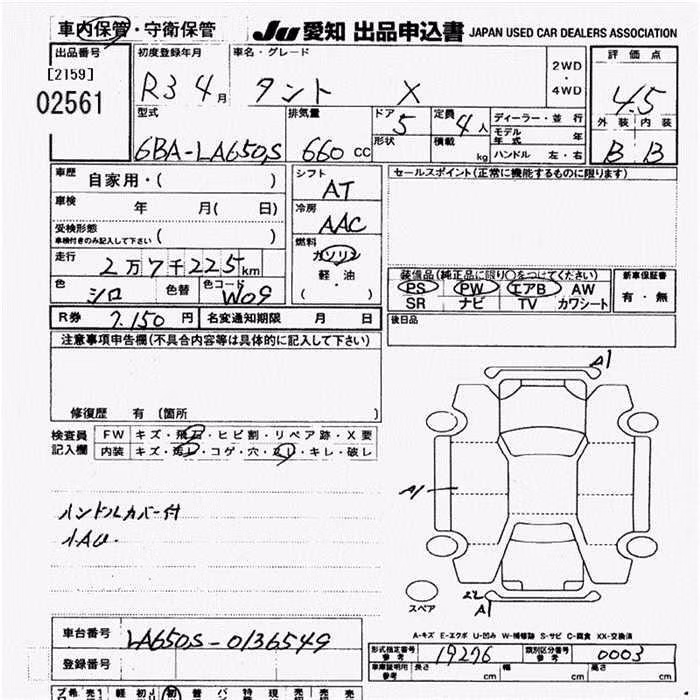 車内保管・守衛保管 Ju 愛知 出品申込書 JAPAN USED CAR DEALERS ASSOCIATION
出品番号 初度登録年月 車名・グレード 評価点
[2159] 2WD・4WD
02561 R3 4月 タント X 4.5
型式 排気量 ドア 定員 ディーラー・並行 外装 内装
6BA-LA650S 660cc 5 4人 モデル年式 年 B B
形状 積載 kg ハンドル 左・右
車歴 自家用・( ) シフト AT セールスポイント(正常に機能するものに限ります)
車検 年 月( 日) 冷房 AAC
受検形態 ( )
車検付きのみ記入して下さい
燃料 ガソリン 軽・油 ( )
走行 2万7千225km 装備品(純正品に限り○をつけてください) 新車保証書
色 シロ 色替 色コード W09 PS PW エアB AW 有・無
SR ナビ TV カワシート
R券 7,150円 名変通知期限 月 日 後日品
注意事項申告欄(不具合内容等は具体的に記入して下さい)
修復歴 有 (箇所 )
検査員記入欄 FW キズ・飛石・ヒビ割・リペア跡・X要
内装 キズ・汚レ・コゲ・穴・スレ・キレ・破レ
A1
A1
ハンドルカバー付
スペア
A1
A-キズ E-エクボ U-凹み W-補修跡 S-サビ C-腐食 XX-交換済
車台番号 LA650S-0136549
登録番号
形式指定番号 参考 19276 類別区分番号 参考 0003
車庫証明用 参考 長さ cm 幅 cm 高さ cm